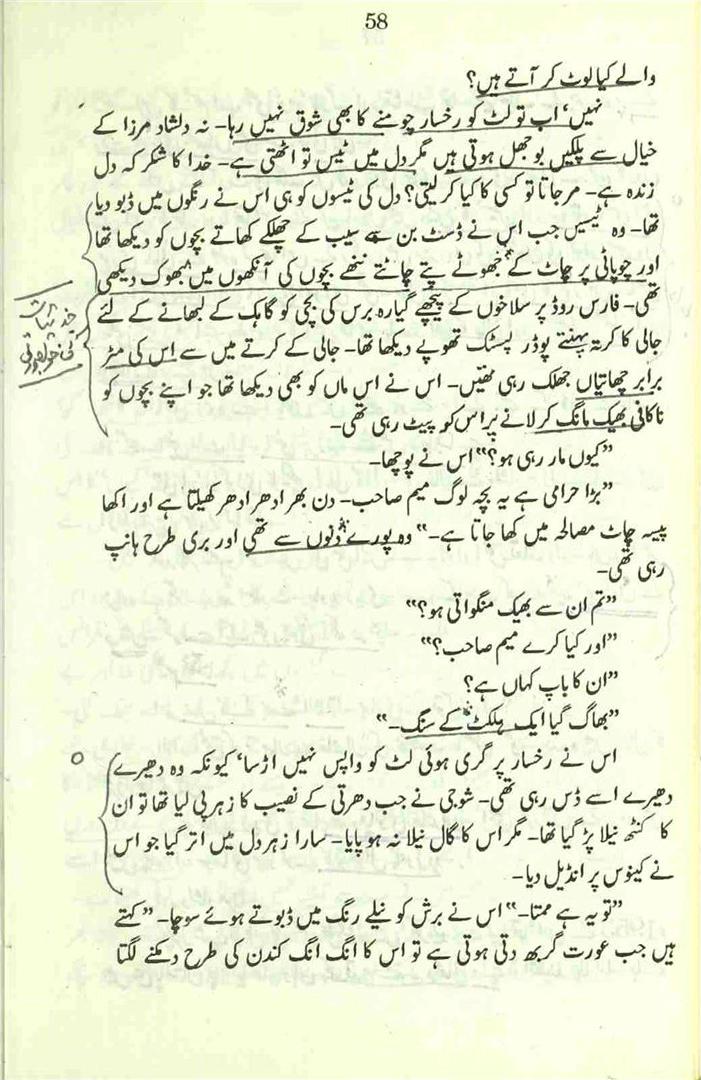 58
والے کیا لوٹ کر آتے ہیں؟
نہیں‘ اب تو لٹ کو رخسار چومنے کا بھی شوق نہیں رہا۔ نہ دلشاد مرزا کے
خیال سے پلکیں بوجھل ہوتی ہیں مگر دل میں ٹیس تو اٹھتی ہے۔ خدا کا شکر کہ دل
زندہ ہے۔ مر جاتا تو کسی کا کیا کر لیتی؟ دل کی ٹیسوں کو ہی اس نے رنگوں میں ڈبو دیا
تھا۔ وہ ٹیسیں جب اس نے ڈسٹ بن سے سیب کے چھلکے کھاتے بچوں کو دیکھا تھا
اور چوپاٹی پر چاٹ کے جھوٹے پتے چاٹتے ننھے بچوں کی آنکھوں میں بھوک دیکھی
تھی۔ فارس روڈ پر سلاخوں کے پیچھے گیارہ برس کی بچی کو گاہک کے لبھانے کے لئے
جالی کا کرتہ پہنتے پوڈر لپسٹک تھوپے دیکھا تھا۔ جالی کے کرتے میں سے اس کی مٹر
برابر چھاتیاں جھلک رہی تھیں۔ اس نے اس ماں کو بھی دیکھا تھا جو اپنے بچوں کو
ناکافی بھیک مانگ کر لانے پر اس کو پیٹ رہی تھی۔
جذبات
کی خوبصورتی
”کیوں مار رہی ہو؟“ اس نے پوچھا۔
”بڑا حرامی ہے یہ بچہ لوگ میم صاحب۔ دن بھر ادھر ادھر کھیلتا ہے اور اکھا
پیسہ چاٹ مصالحہ میں کھا جاتا ہے۔“ وہ پورے دنوں سے تھی اور بری طرح ہانپ
رہی تھی۔
”تم ان سے بھیک منگواتی ہو؟“
”اور کیا کرے میم صاحب؟“
”ان کا باپ کہاں ہے؟
”بھاگ گیا ایک ہلکٹ کے سنگ۔“
اس نے رخسار پر گری ہوئی لٹ کو واپس نہیں اڑسا‘ کیونکہ وہ دھیرے
دھیرے اسے ڈس رہی تھی۔ شوجی نے جب دھرتی کے نصیب کا زہر پی لیا تھا تو ان
کا کنٹھ نیلا پڑ گیا تھا۔ مگر اس کا گال نیلا نہ ہو پایا۔ سارا زہر دل میں اتر گیا جو اس
نے کینوس پر انڈیل دیا۔
”تو یہ ہے ممتا۔“ اس نے برش کو نیلے رنگ میں ڈبوتے ہوئے سوچا۔ ”کہتے
ہیں جب عورت گربھ دتی ہوتی ہے تو اس کا انگ انگ کندن کی طرح دمکنے لگتا